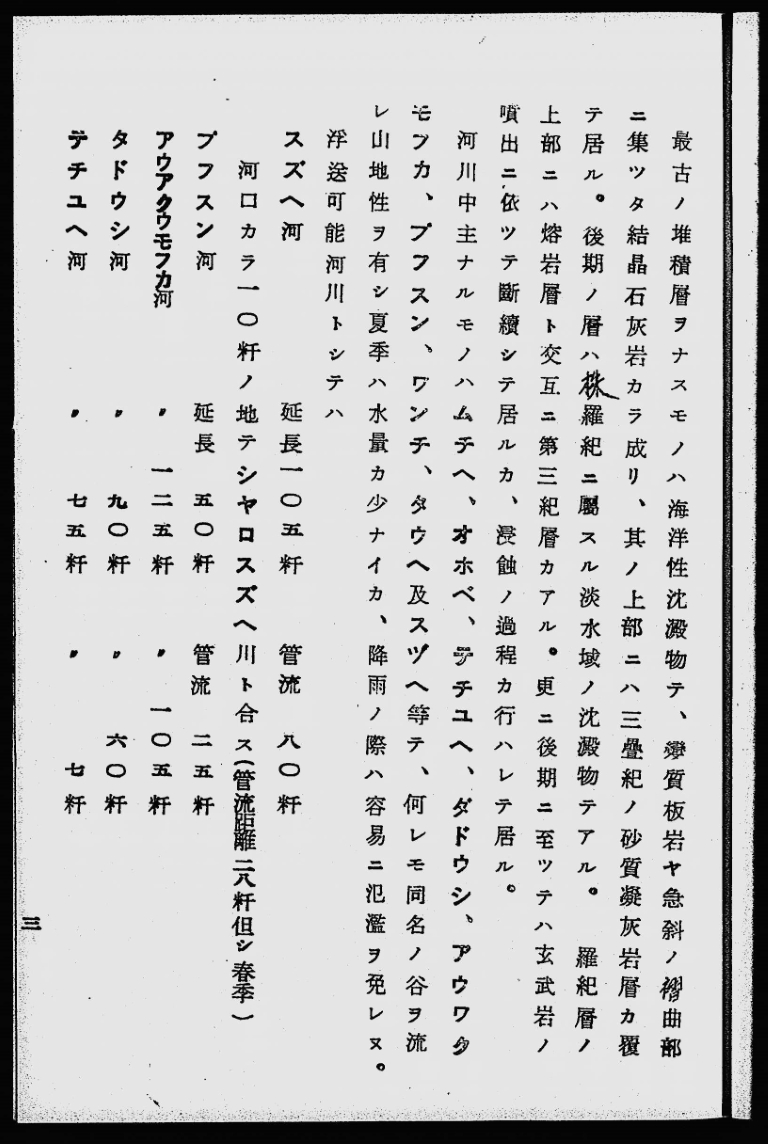 最古ノ堆積層ヲナスモノハ海洋性沈澱物テ、變質板岩ヤ急斜ノ褶曲部
ニ集ツタ結晶石灰岩カラ成リ、其ノ上部ニハ三疊紀ノ砂質凝灰岩層カ覆
テ居ル。後期ノ層ハ株羅紀ニ屬スル淡水域ノ沈澱物テアル。　羅紀層ノ
上部ニハ熔岩層ト交互ニ第三紀層カアル。更ニ後期ニ至ツテハ玄武岩ノ
噴出ニ依ツテ斷續シテ居ルカ、浸蝕ノ過程カ行ハレテ居ル。
河川中主ナルモノハムチヘ、オホベ、テチユヘ、ダドウシ、アウワタ
モフカ、プフスン、ワンチ、タウヘ及スヅヘ等テ、何レモ同名ノ谷ヲ流
レ山地性ヲ有シ夏季ハ水量カ少ナイカ、降雨ノ際ハ容易ニ氾濫ヲ免レヌ。
浮送可能河川トシテハ
スズヘ河　延長一〇五粁　管流　八〇粁
河口カラ一〇粁ノ地テシヤロスズヘ川ト合ス(管流距離二八粁但シ春季)
プフスン河　延長　五〇粁　管流　二五粁
アウアクウモフカ河　〃　一二五粁　〃　一〇五粁
タドウシ河　〃　九〇粁　〃　六〇粁
テチユヘ河　〃　七五粁　〃　七粁
三